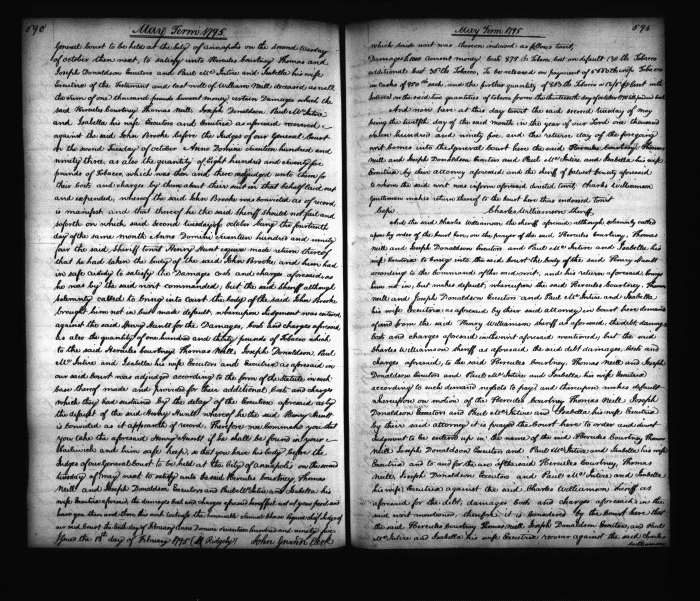 590
May Term 1795
General Court to be held at the City of Annapolis on the second Tuesday
of October then next, to satisfy unto Hercules Courtney Thomas and
Joseph Donaldson Executors and Paul McIntire and Isabella his wife
Executrix of the Testament and last will of William Neill deceased as well
the sum of one thousand pounds current money certain Damages which the
said Hercules Courtney Thomas Neill, Joseph Donaldson, Paul McIntire
and Isabella his wife Executors and Executrix as aforesaid recovered
against the said John Brooke before the Judges of our General Court
on the second Tuesday of October Anno Domini seventeen hundred and
ninety three, as also the quantity of Eight hundred and seventy five
pounds of Tobacco, which was then and there adjudged unto them for
their costs and charges by them about their suit in that behalf laid out
and expended, whereof the said John Brooke was convicted as of record
is manifest and that thereof he the said sheriff should not fail and
so forth on which said second tuesday of october being the fourteenth
day of the same month Anno Domini seventeen hundred and ninety
four the said Sheriff Henry Hunt esquire made return thereof
that he had taken the body of the said John Brooke and him had
in safe custody to satisfy the Damages costs and charges aforesaid, as
he was by the said writ commanded, but the said Sheriff although
solemnly called to bring into court the body of the said John Brooke
brought him not in but made default, whereupon Judgment was entered
against the said Henry Hunt for the Damages, costs and charges aforesaid
as also the quantity of one hundred and thirty pounds of Tobacco which
to the said Hercules Courtney Thomas Neill, Joseph Donaldson, Paul
McIntire and Isabella his wife Executors and Executrix as aforesaid in
our said Court was adjudged according to the form of the Statute in such
case thereof made and provided for their additional costs and charges
which they had sustained by the delay of the Execution aforesaid, as by
the default of the said Henry Hunt whereof he the said Henry Hunt
is convicted as it appears of record. Therefore we command you that
you take the aforesaid Henry Hunt if he shall be found in your
Bailiwick and him safe keep, so that you have his body before the
Judges of our General Court to be held at the City of Annapolis on the second
tuesday of may next to satisfy unto the said Hercules Courtney, Thomas
Neill and Joseph Donaldson Executors and Paul McIntire and Isabella his
wife Executrix aforesaid the damages costs and charges aforesaid
have you then and there this writ witness the honorable Samuel Chase Esquire chief Judge of
our said Court the day of February Anno Domini seventeen hundred and ninety five
Issued the 18th day of February 1795 (M Ridgely) John Gwinn Clerk
May Term 1795
which said writ was thereon endorsed as follows towit,
Damages current money Costs 875 lb Tobacco Cost on default 130 lb Tobacco
additional Cost 38 lb Tobacco, To be released on payment of
in casks of 950 lb each and the further quantity of
interest on the said two quantities of tobacco from the thirteenth day of october
And now here at this day towit the said second tuesday of may
being the twelfth day of the said month in the year of our Lord one thousand
seven hundred and ninety five, and the return day of the foregoing
writ comes into the General Court here the said Hercules Courtney, Thomas
Neill and Joseph Donaldson Executors and Paul McIntire and Isabella his wife
Executrix by their attorney aforesaid and the sheriff of Calvert County aforesaid
to whom the said writ was in form aforesaid directed towit Charles Williamson
Gentleman makes return thereof to the court here thus endorsed towit
Cepi. Charles Williamson sheriff,
but the said Charles Williamson the sheriff aforesaid, although solemnly called
upon by order of the court here on the prayer of the said Hercules Courtney, Thomas
Neill and Joseph Donaldson Executors and Paul McIntire and Isabella, his
wife Executrix to bring into the said court the body of the said Henry Hunt
according to the command of the said writ, and his return aforesaid brings
him not in, but makes default, whereupon the said Hercules Courtney, Thomas
Neill and Joseph Donaldson Executors and Paul McIntire and Isabella
his wife Executrix as aforesaid by their said attorney in court here demand
of and from the said Henry Williamson sheriff as aforesaid, the debt, damages
costs and charges aforesaid in the writ aforesaid mentioned, but the said
Charles Williamson sheriff as aforesaid the said debt damages, costs and
charges aforesaid, to the said Hercules Courtney, Thomas Neill and Joseph
Donaldson Executors and Paul McIntire and Isabella, his wife Executrix
according to such demand neglects to pay and thereupon makes default
whereupon on motion of the Hercules Courtney Thomas Neill Joseph
Donaldson Executors and Paul McIntire and Isabella his wife Executrix
by their said attorney it is prayed the Court here to order and direct
Judgment to be entered up in the name of the said Hercules Courtney Thomas
Neill Joseph Donaldson Executors and Paul McIntire and Isabella his wife
Executrix and to and for the use of the said Hercules Courtney, Thomas
Neill, Joseph Donaldson Executors and Paul McIntire and Isabella
his wife Executrix against the said Charles Williamson sheriff as
aforesaid for the debt, damages costs and charges aforesaid in the
said writ mentioned, therefore it is considered by the court here that
the said Hercules Courtney Thomas Neill Joseph Donaldson Executors, and Paul
McIntire and Isabella his wife Executrix recover against the said Charles
Williamson